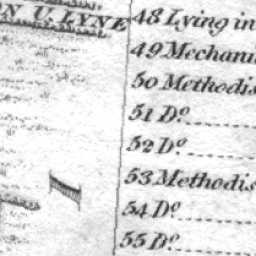 ON U. LYNE
48 Lying in
49 Mechani
50 Methodis
51 Do.
52 Do.
53 Methodis
54 Do.
55 Do.